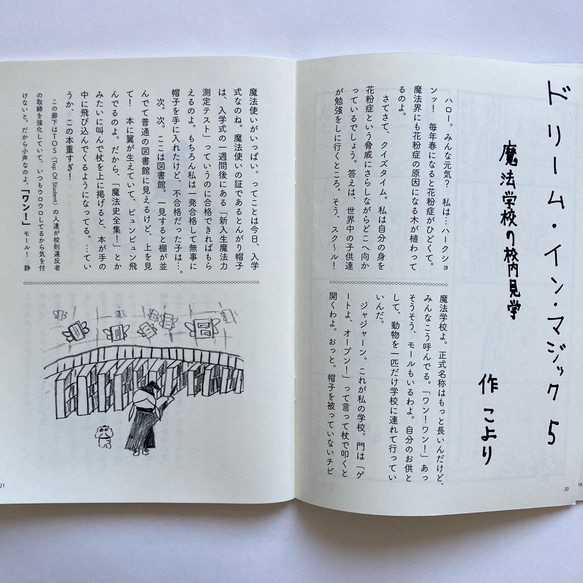 ドリーム・イン・マジック 5
魔法学校の校内見学
作 こより
ハロー。みんな元気？ 私は…ハークショ
ンッ！ 毎年春になると花粉症がひどくて。
魔法界にも花粉症の原因になる木が植わって
るのよ。
さてさて、クイズタイム。私は自分の身を
花粉症という脅威にさらしながらどこへ向か
っているでしょう。答えは、世界中の子供達
が勉強をしに行くところ。そう、スクール！
魔法学校よ。正式名称はもっと長いんだけど、
みんなこう呼んでる。「ワン！ワン！」あっ
そうそう、モールもいるわよ。自分のお供と
して、動物を一匹だけ学校に連れて行ってい
いんだ。
ジャジャーン。これが私の学校。門は「ゲ
ートよ、オープン！」って言って杖で叩くと
開くわよ。おっと。帽子を被っていないチビ
20
魔法使いがいっぱい。ってことは今日、入学
式なのね。魔法使いの証であるとんがり帽子
は、入学式の一週間後にある「新入生魔法力
測定テスト」っていうのに合格できればもら
えるのよ。もちろん私は一発合格して無事に
帽子を手に入れたけど、不合格だった子は…。
次、次。ここは図書館。一見すると棚が並
んでて普通の図書館に見えるけど、上を見
て！ 本に翼が生えていて、ビュンビュン飛
んでるのよ。だから、「魔法史全集！」とか
みたいに叫んで杖を上に掲げると、本が手の
中に飛び込んでくるようになってる。…てい
うか、この本重すぎ！…
この廊下はTOS（Top Of Student）の人達が校則違反者
の取締を強化していて、いつもウロウロしてるから気を付
けないと。だから小声なのよ。「ワン！」モール！ 静
21